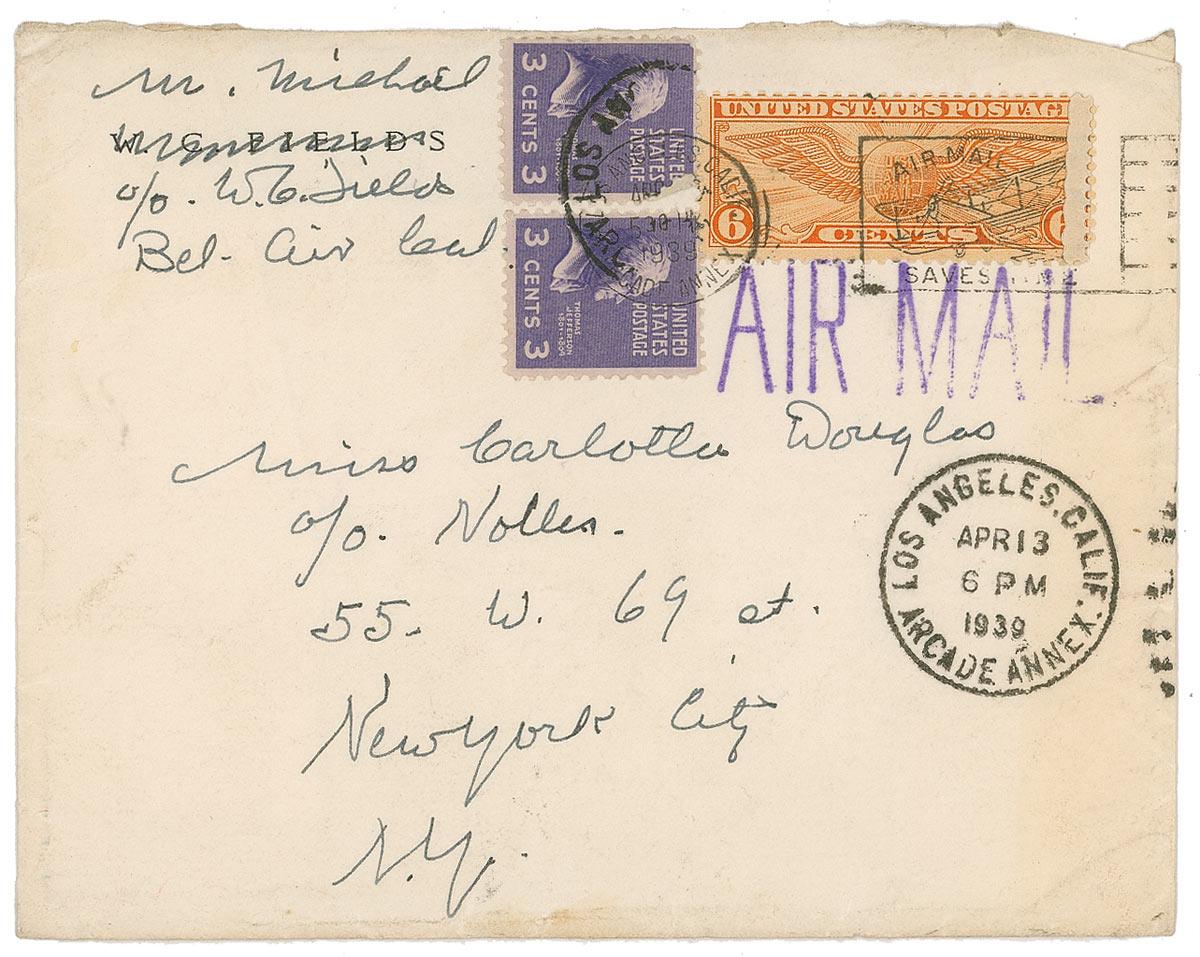 Mr. Michael
W. C. FIELDS
c/o. W.C. Fields
Bel-Air Cal.
3 CENTS 3
UNITED STATES POSTAGE
3 CENTS 3
THOMAS JEFFERSON
1801-1809
UNITED STATES POSTAGE
UNITED STATES POSTAGE
6 CENTS 6
LOS ANGELES, CALIF.
1939
ARCADE ANNEX
AIR MAIL
SAVES TIME
AIR MAIL
Miss Carlotta Douglas
c/o. Nolles.
55 W. 69 st.
New York City
N.Y.
LOS ANGELES, CALIF.
APR 13
6 PM
1939
ARCADE ANNEX.